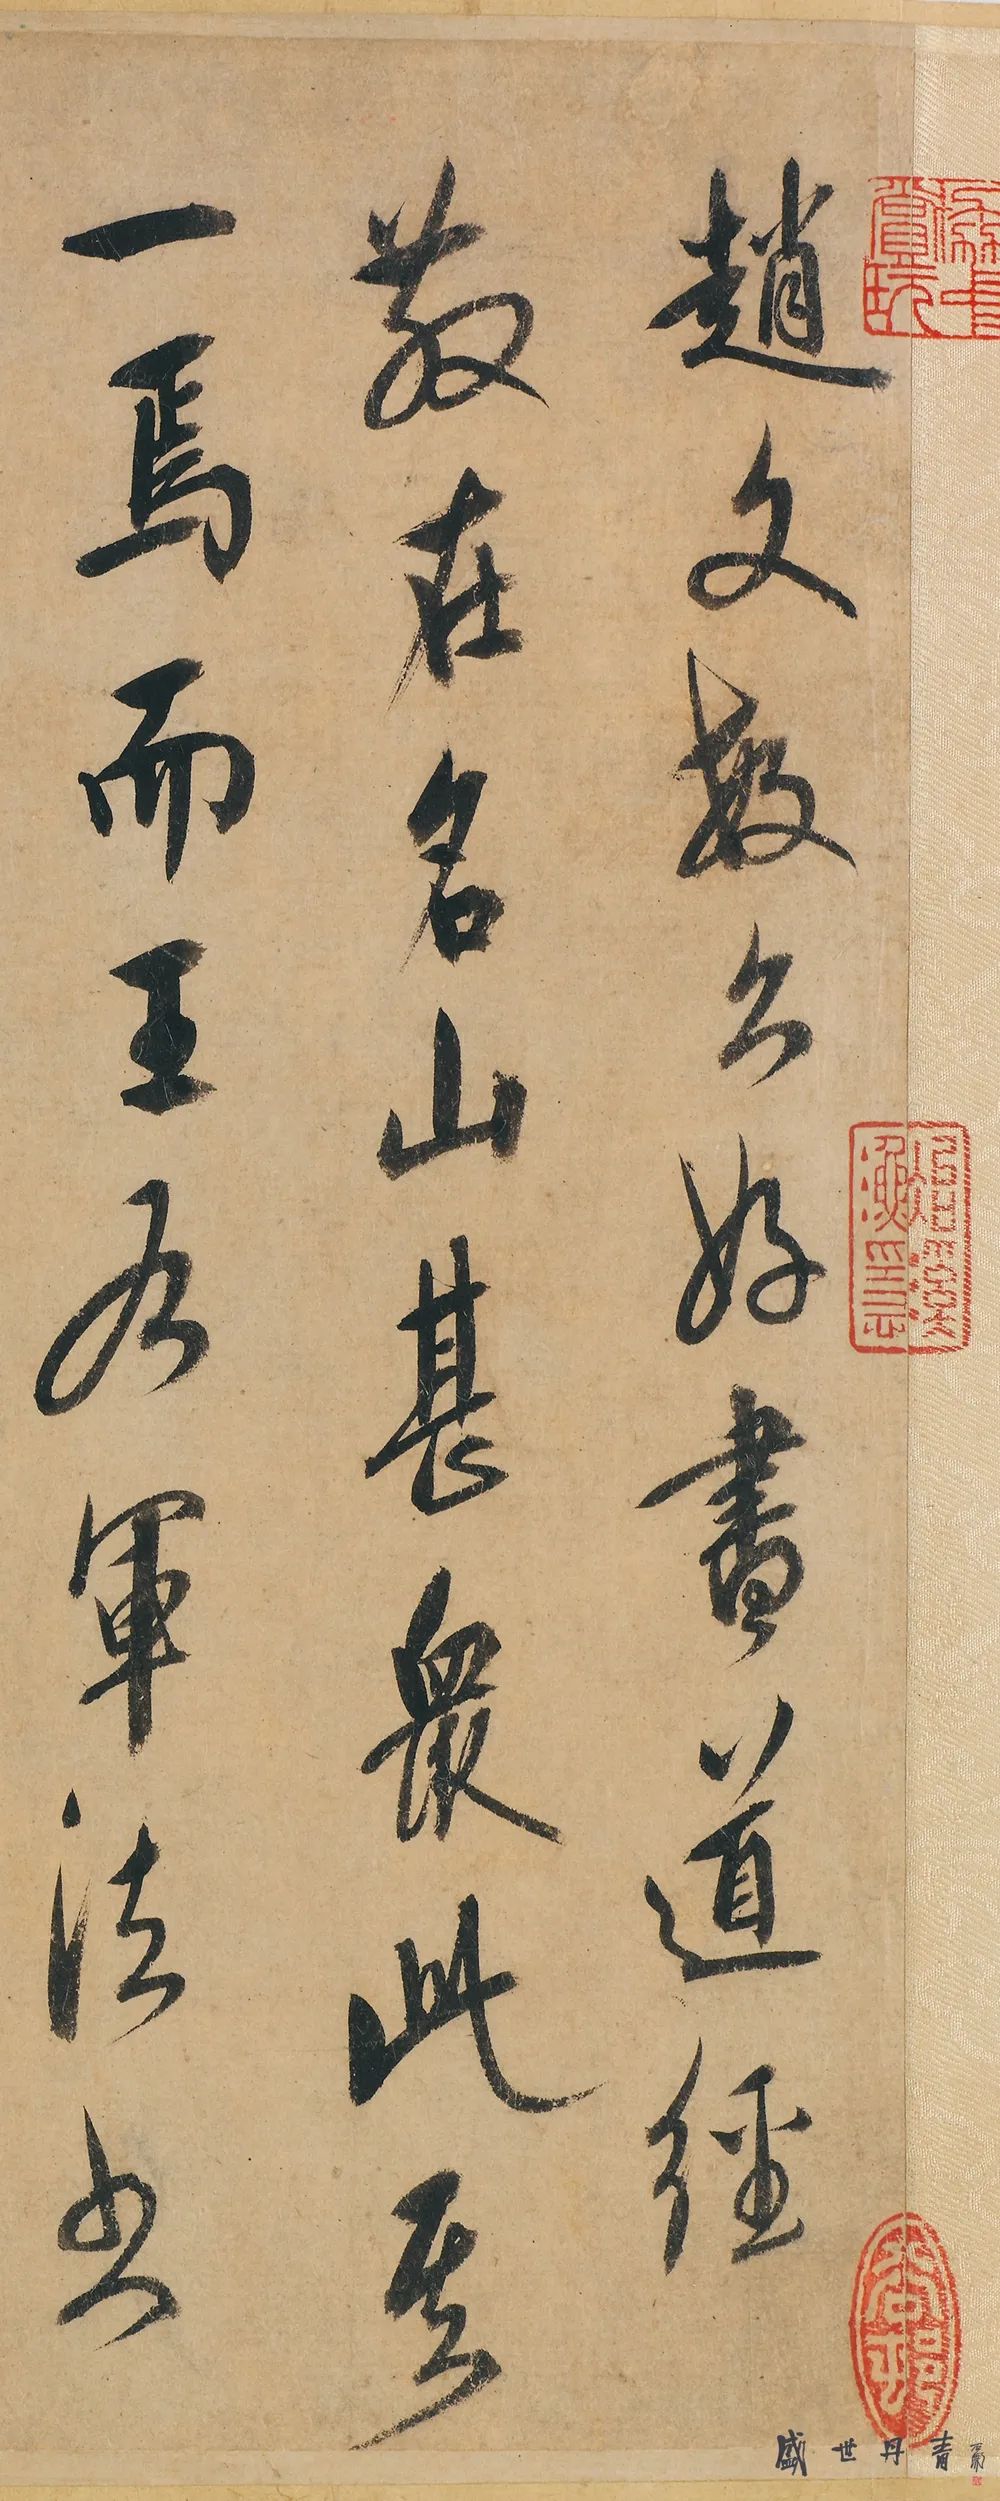 趙文敏公好書道經
散在名山甚衆此其
一焉而王右軍法尤
盛世丹青